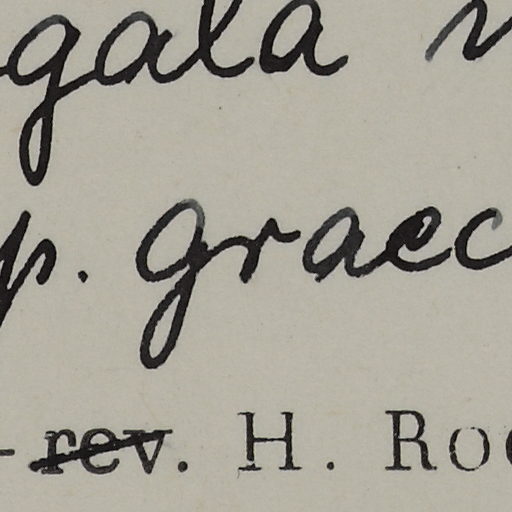 gala
p. graec
- rev. H. Ro